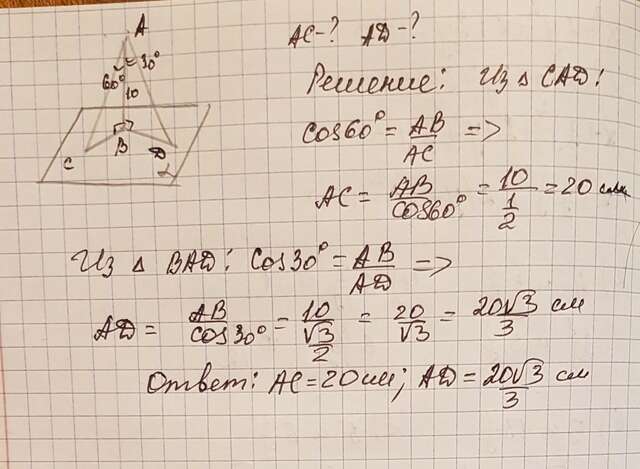 A
60° 30°
10
C B D α
AC-? AD-?
Решение: Из △ CAD:
cos60° = AB/AC =>
AC = AB/cos60° = 10/(1/2) = 20 см
Из △ BAD: cos30° = AB/AD =>
AD = AB/cos30° = 10/(√3/2) = 20/√3 = 20√3/3 см
Ответ: AC = 20 см; AD = 20√3/3 см